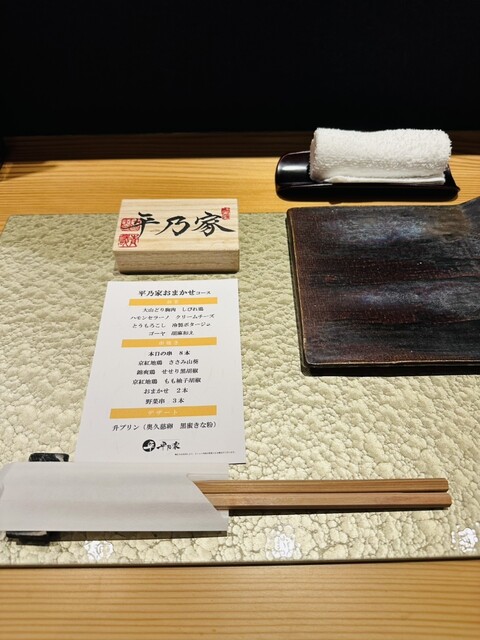 平乃家
平乃家おまかせコース
前菜
大山どり胸肉 しびれ鶏
ハモンセラーノ クリームチーズ
とうもろこし 冷製ポタージュ
ゴーヤ 胡麻和え
串焼き
本日の串 8本
京紅地鶏 ささみ山葵
錦爽鶏 せせり黒胡椒
京紅地鶏 もも柚子胡椒
おまかせ 2本
野菜串 3本
デザート
升プリン（奥久慈卵 黒蜜きな粉）
平乃家